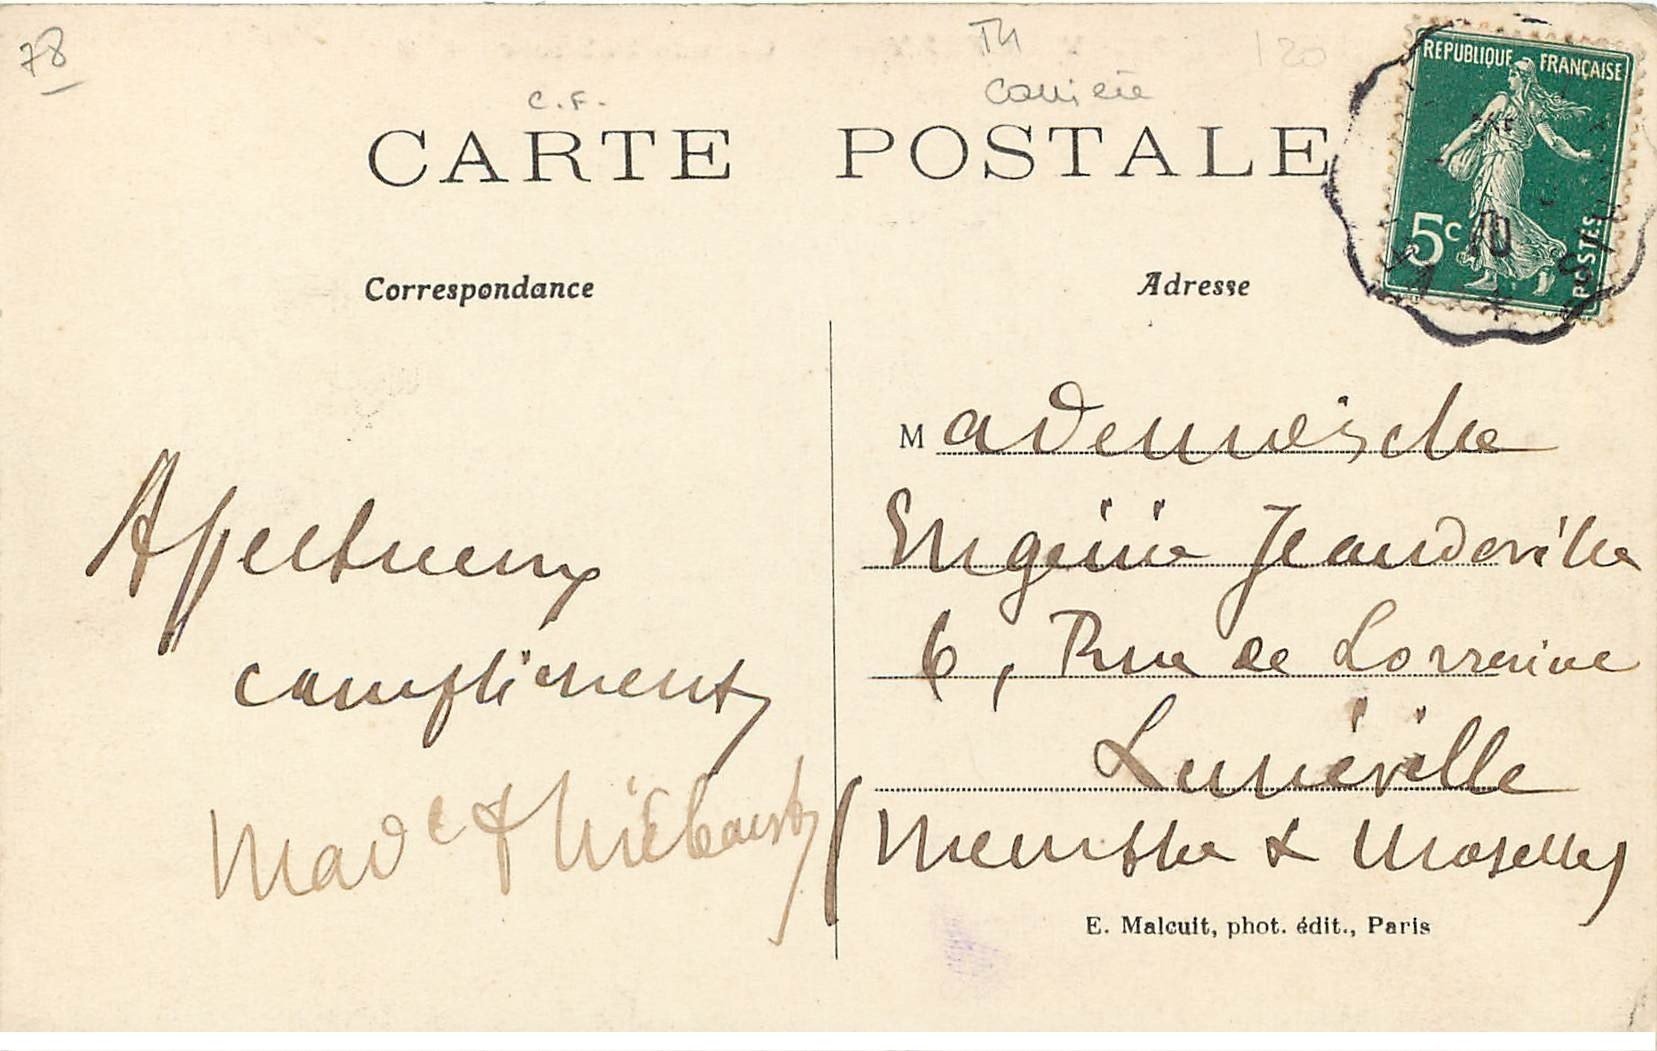 78
C.F.
Th
Carrière
120
CARTE POSTALE
REPUBLIQUE FRANÇAISE
5c
POSTES
10
Correspondance
Adresse
Affectueux
compliments
Made Thiébault
Mademoiselle
Eugénie Jeandeville
6, Rue de Lorraine
Lunéville
(Meurthe & Moselle)
E. Malcuit, phot. édit., Paris